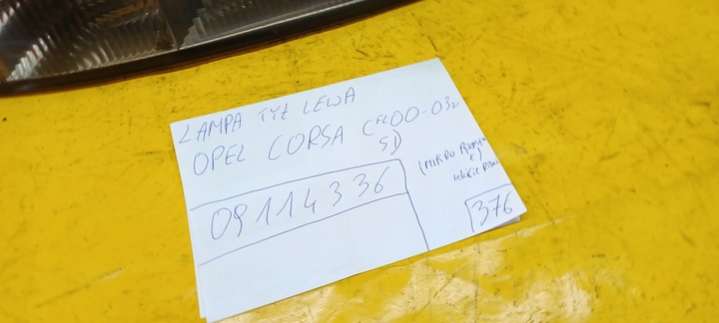 LAMPA TYŁ LEWA
OPEL CORSA C FL 00-03r
5D
09114336
(MIKRO
376